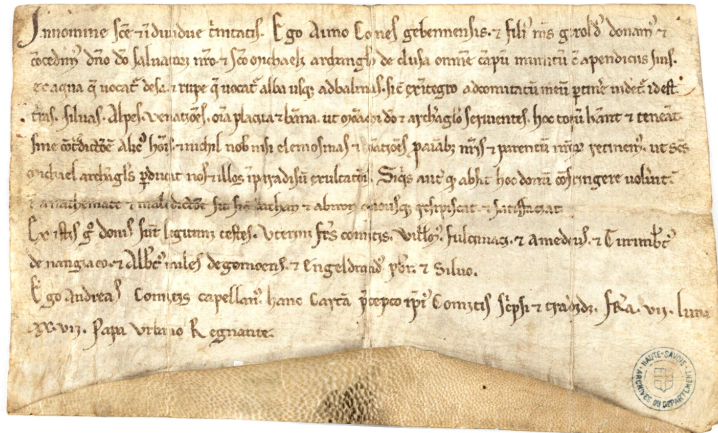 In nomine scē et indiuidue trinitatis. Ego Aimo Comes gebennensis. & fili᾽ m̄s giroldʼ donamʼ &
cōcedimʼ dn̄o dō saluatori nr̄o. & scō michaeli archangl̄o de clusa omnem cāpū munitū cū apendiciis suis.
ex aqua q̄ uocat᾽ desa. & rupe q̄ uocat᾽ alba usq; ad balmas. sic̄ ex integro ad comitatū meū ptinē uidet᾽. id est
tr̄as. siluas. Alpes. uenatiōes. oīa placita & bāna. ut monachi dō & archāglo seruientes. hoc totū hab̄ant & teneāt
sine
& nichil nob nisi elemosinas & orationes
& parentum
ut scs̄
michael archāgl̄s pducat nos & illos ī paradisum exultacionis. Siq̄s aut̄ q̄ absit hoc donū cōfringere uolūit
ī anathemate & maledictiōe sit sic̄ dathan & abiron
resipiscat & satisfaciat.
Ex istis gͦ donis sūt legitimi testes. Uterini fr̄s comitis. Will̄s. fulciniacʼ. & Amedeus. & Turumbtʼ
de nangiaco. & Alb̄tʼ miles de gomoens. & Engeldrandʼ pbr. & Siluo.
Ego Andreas Comitis capellanʼ hanc Cartā p̄cepto ipsiʼ Comitis sc̄psi & tradidi. fr̄a. vii. luna
xx.vii. Papa Urbano Regnante.
HAUTE-SAVOIE
ARCHIVES DU DÉPARTEMENT